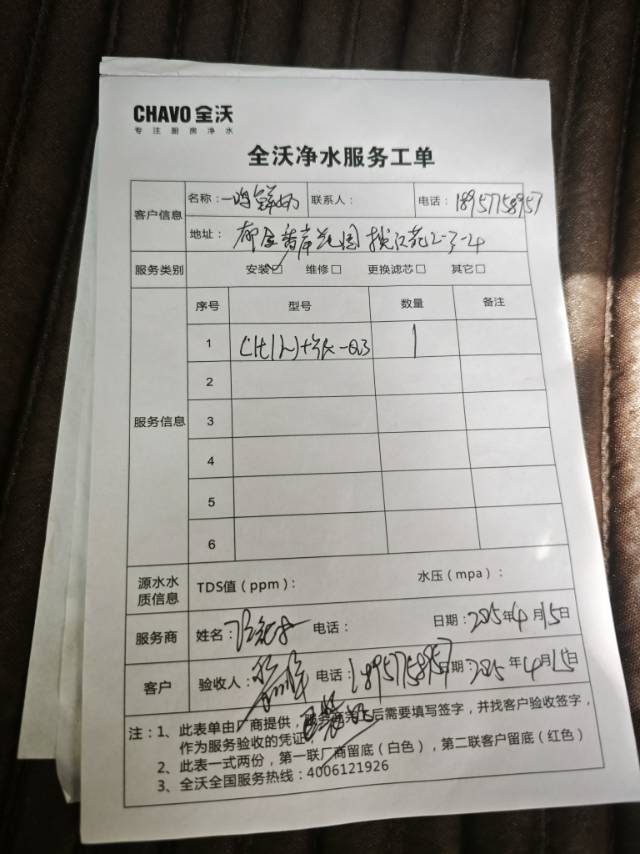 CHAVO 全沃
专注厨房净水
全沃净水服务工单
客户信息
名称：一鸣鲜奶 联系人： 电话：18957758957
地址：都金香岸花园 2-3-4
服务类别 安装☐ 维修☐ 更换滤芯☐ 其它☐
服务信息
序号 型号 数量 备注
1 1
2
3
4
5
6
源水水质信息 TDS值（ppm）： 水压（mpa）：
服务商 姓名： 电话： 日期：2015年4月15日
客户 验收人： 电话：18957758957 日期：2015年4月15日
注：1、此表单由厂商提供，后需要填写签字，并找客户验收签字，
作为服务验收的凭证
2、此表一式两份，第一联厂商留底（白色），第二联客户留底（红色）
3、全沃全国服务热线：4006121926